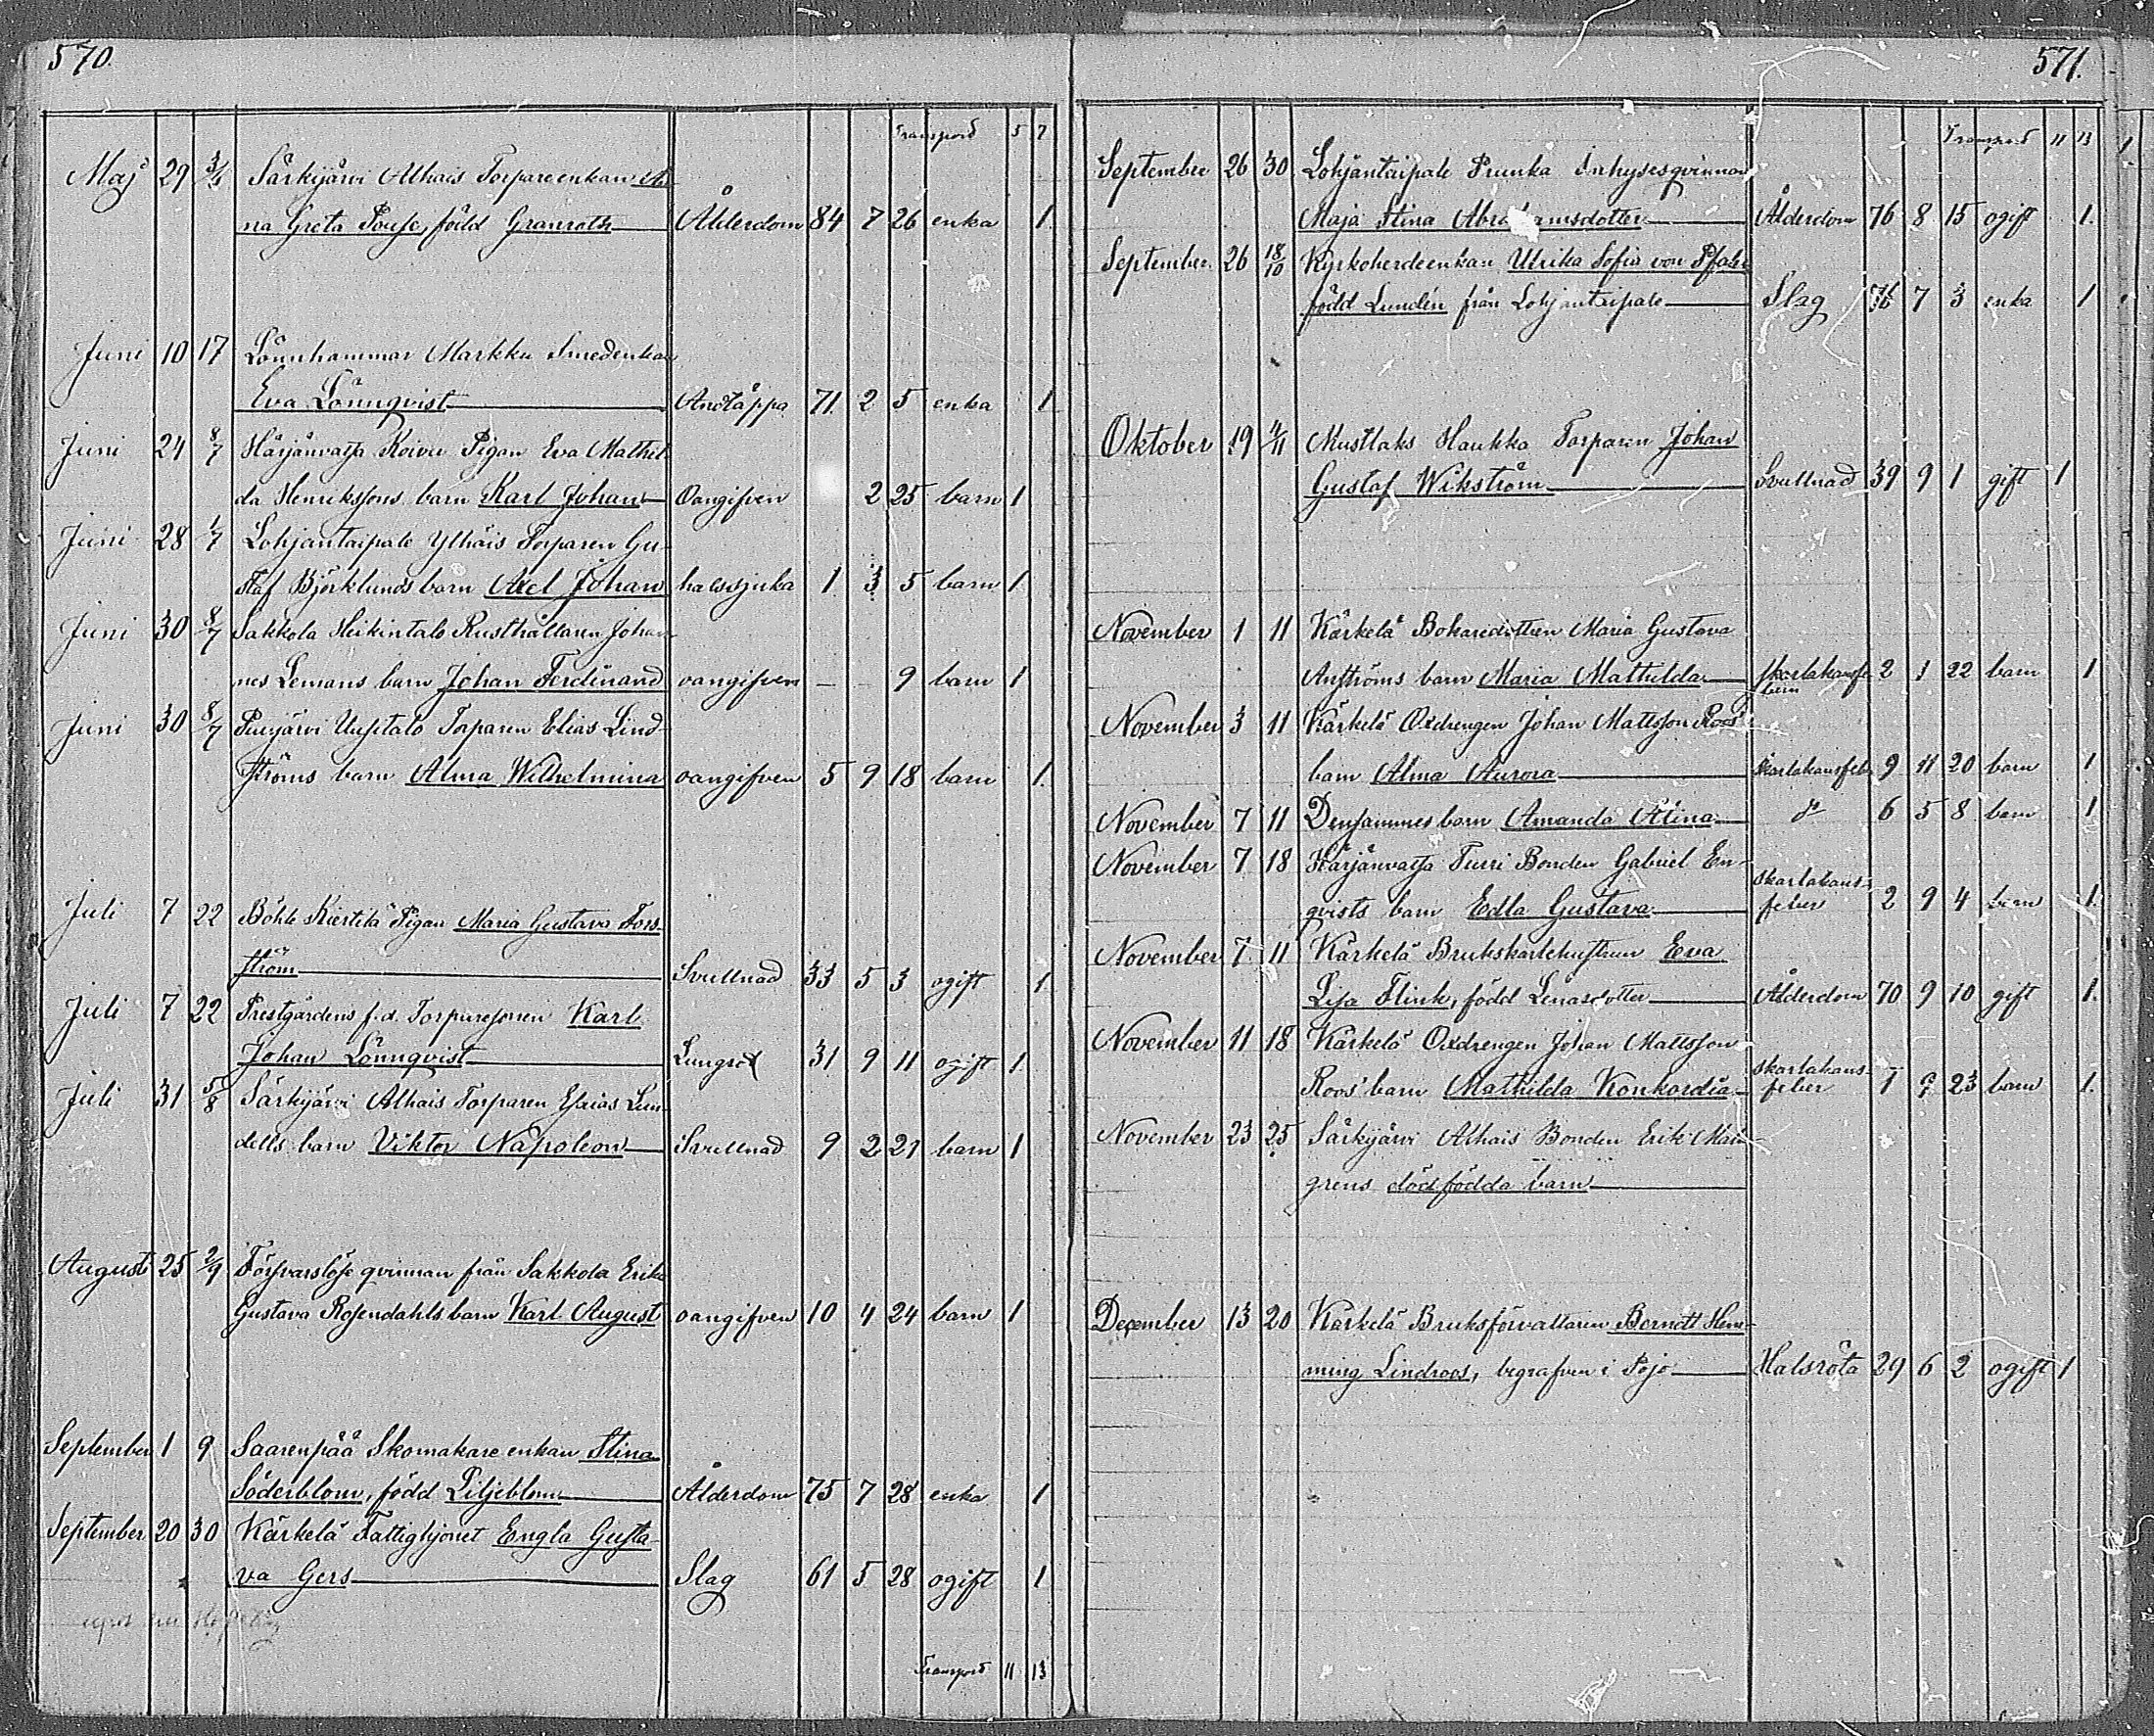 570.
Transport 5 7
Maj 29 3/6 Särkijärvi Alhais Torpareenkan An
na Greta Pouse, född Granroth Ålderdom 84 7 26 enka 1
Juni 10 17 Lönnhammar Markku Smedenkan
Eva Lönnqvist Andtäppa 71 2 5 enka 1
Juni 24 8/7 Härjänvatsa Koivu Pigan Eva Mathil
da Henrikssons barn Karl Johan Oangifven 2 25 barn 1
Juni 28 1/7 Lohjantaipale Ylhäis Torparen Gu-
staf Björklunds barn Axel Johan halssjuka 1 3 5 barn 1
Juni 30 8/7 Sakkola Heikintalo Rusthållaren Johan
nes Lemans barn Johan Ferdinand oangifven — 9 barn 1
Juni 30 8/7 Puujärvi Uusitalo Torparen Elias Lind-
ströms barn Alma Wilhelmina oangifven 5 9 18 barn 1
Juli 7 22 Böhle Kierttilä Pigan Maria Gustava Fors-
ström Svullnad 33 5 3 ogift 1
Juli 7 22 Prestgårdens f.d. Torparesonen Karl
Johan Lönnqvist Lungsot 31 9 11 ogift 1
Juli 31 5/8 Särkijärvi Alhais Torparen Esaias Lin-
dells barn Viktor Napoleon Svullnad 9 2 21 barn 1
August 25 2/9 Försvarslösa qvinnan från Sakkola Erika
Gustava Rosendahls barn Karl August oangifven 10 4 24 barn 1
September 1 9 Saarenpää Skomakare enkan Stina
Söderblom, född Liljeblom Ålderdom 75 7 28 enka 1
September 20 30 Kärkelä Fattighjonet Engla Gusta-
va Gers Slag 61 5 28 ogift 1
Transport 11 13
571.
Transport 11 13
September 26 30 Lohjantaipale Prunka Inhysesqvinnan
Maja Stina Abrahamsdotter Ålderdom 76 8 15 ogift 1.
September 26 18/10 Kyrkoherdeenkan Ulrika Sofia von Pfaler
född Lundén från Lohjantaipale Slag 76 7 3 enka 1
Oktober 19 4/11 Mustlaks Haukka Torparen Johan
Gustaf Wikström Svullnad 39 9 1 gift 1
November 1 11 Kärkelä Bokaredottern Maria Gustava
Anströms barn Maria Mathilda skarlakansfe-
bern 2 1 22 barn 1
November 3 11 Kärkelä Oxdrengen Johan Mattsson Roos'
barn Alma Aurora Skarlakansfeber 9 11 20 barn 1
November 7 11 Densammes barn Amanda Alina do 6 5 8 barn 1
November 7 18 Härjänvatsa Turri Bonden Gabriel En-
qvists barn Edla Gustava skarlakans-
feber 2 9 4 barn 1
November 7 11 Kärkelä Brukskarlehustrun Eva
Lisa Flink, född Lenasdotter Ålderdom 70 9 10 gift 1.
November 11 18 Kärkelä Oxdrengen Johan Mattsson
Roos' barn Mathilda Konkordia skarlakans-
feber 1 9 23 barn 1.
November 23 25 Särkijärvi Alhais Bonden Erik Malm
grens dödfödda barn
December 13 20 Kärkelä Bruksförvaltaren Berndt Hem-
ming Lindroos, begrafven i Pojo Halsröta 29 6 2 ogift 1